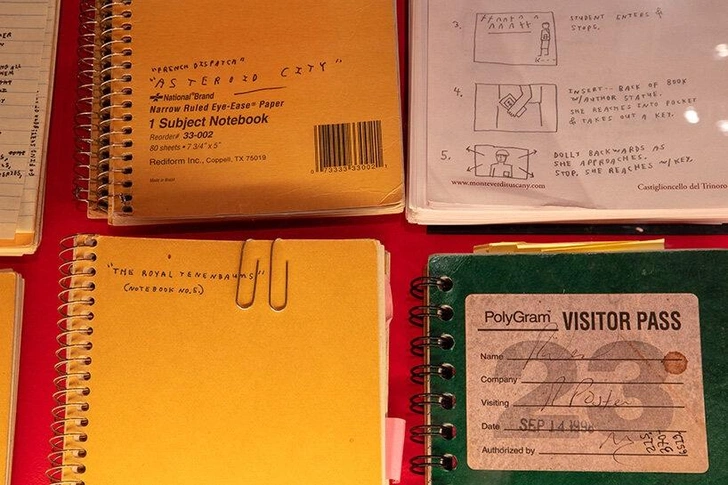 "FRENCH DISPATCH"
"ASTEROID CITY"
National® Brand
Narrow Ruled Eye-Ease® Paper
1 Subject Notebook
Reorder# 33-002
80 sheets • 7 3/4" x 5"
Rediform Inc., Coppell, TX 75019
Made in
0 73333 33002 1
3.
STUDENT ENTERS &
STOPS.
4.
INSERT-- BACK OF BOOK
W/AUTHOR STATUE.
SHE REACHES INTO POCKET
& TAKES OUT A KEY.
5.
DOLLY BACKWARDS AS
SHE APPROACHES.
STOP. SHE REACHES W/KEY.
www.monteverdituscany.com
Castiglioncello del Trinoro
"THE ROYAL TENENBAUMS"
(NOTEBOOK NO.5)
PolyGram VISITOR PASS
23
Name
Company
Visiting
Date SEP 14 1998
Authorized by